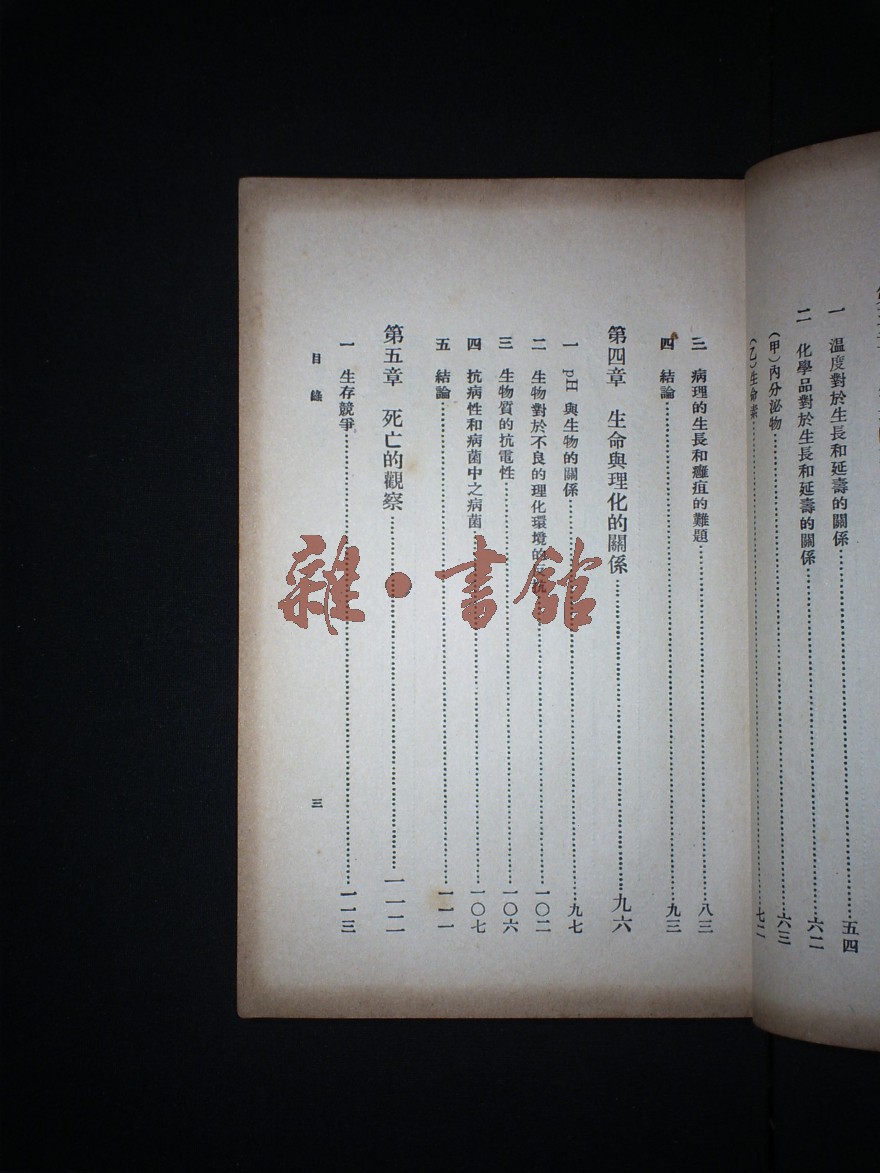 一　溫度對於生長和延壽的關係……五四
二　化學品對於生長和延壽的關係……六二
（甲）內分泌物……六三
（乙）生命素……七二
三　病理的生長和癰疽的難題……八三
四　結論……九三
第四章　生命與理化的關係……九六
一　pH與生物的關係……九七
二　生物對於不良的理化環境的反抗……一〇二
三　生物質的抗電性……一〇六
四　抗病性和病菌中之病菌……一〇七
五　結論……一一一
第五章　死亡的觀察……一一二
一　生存競爭……一一三
目錄
三
雜·書館